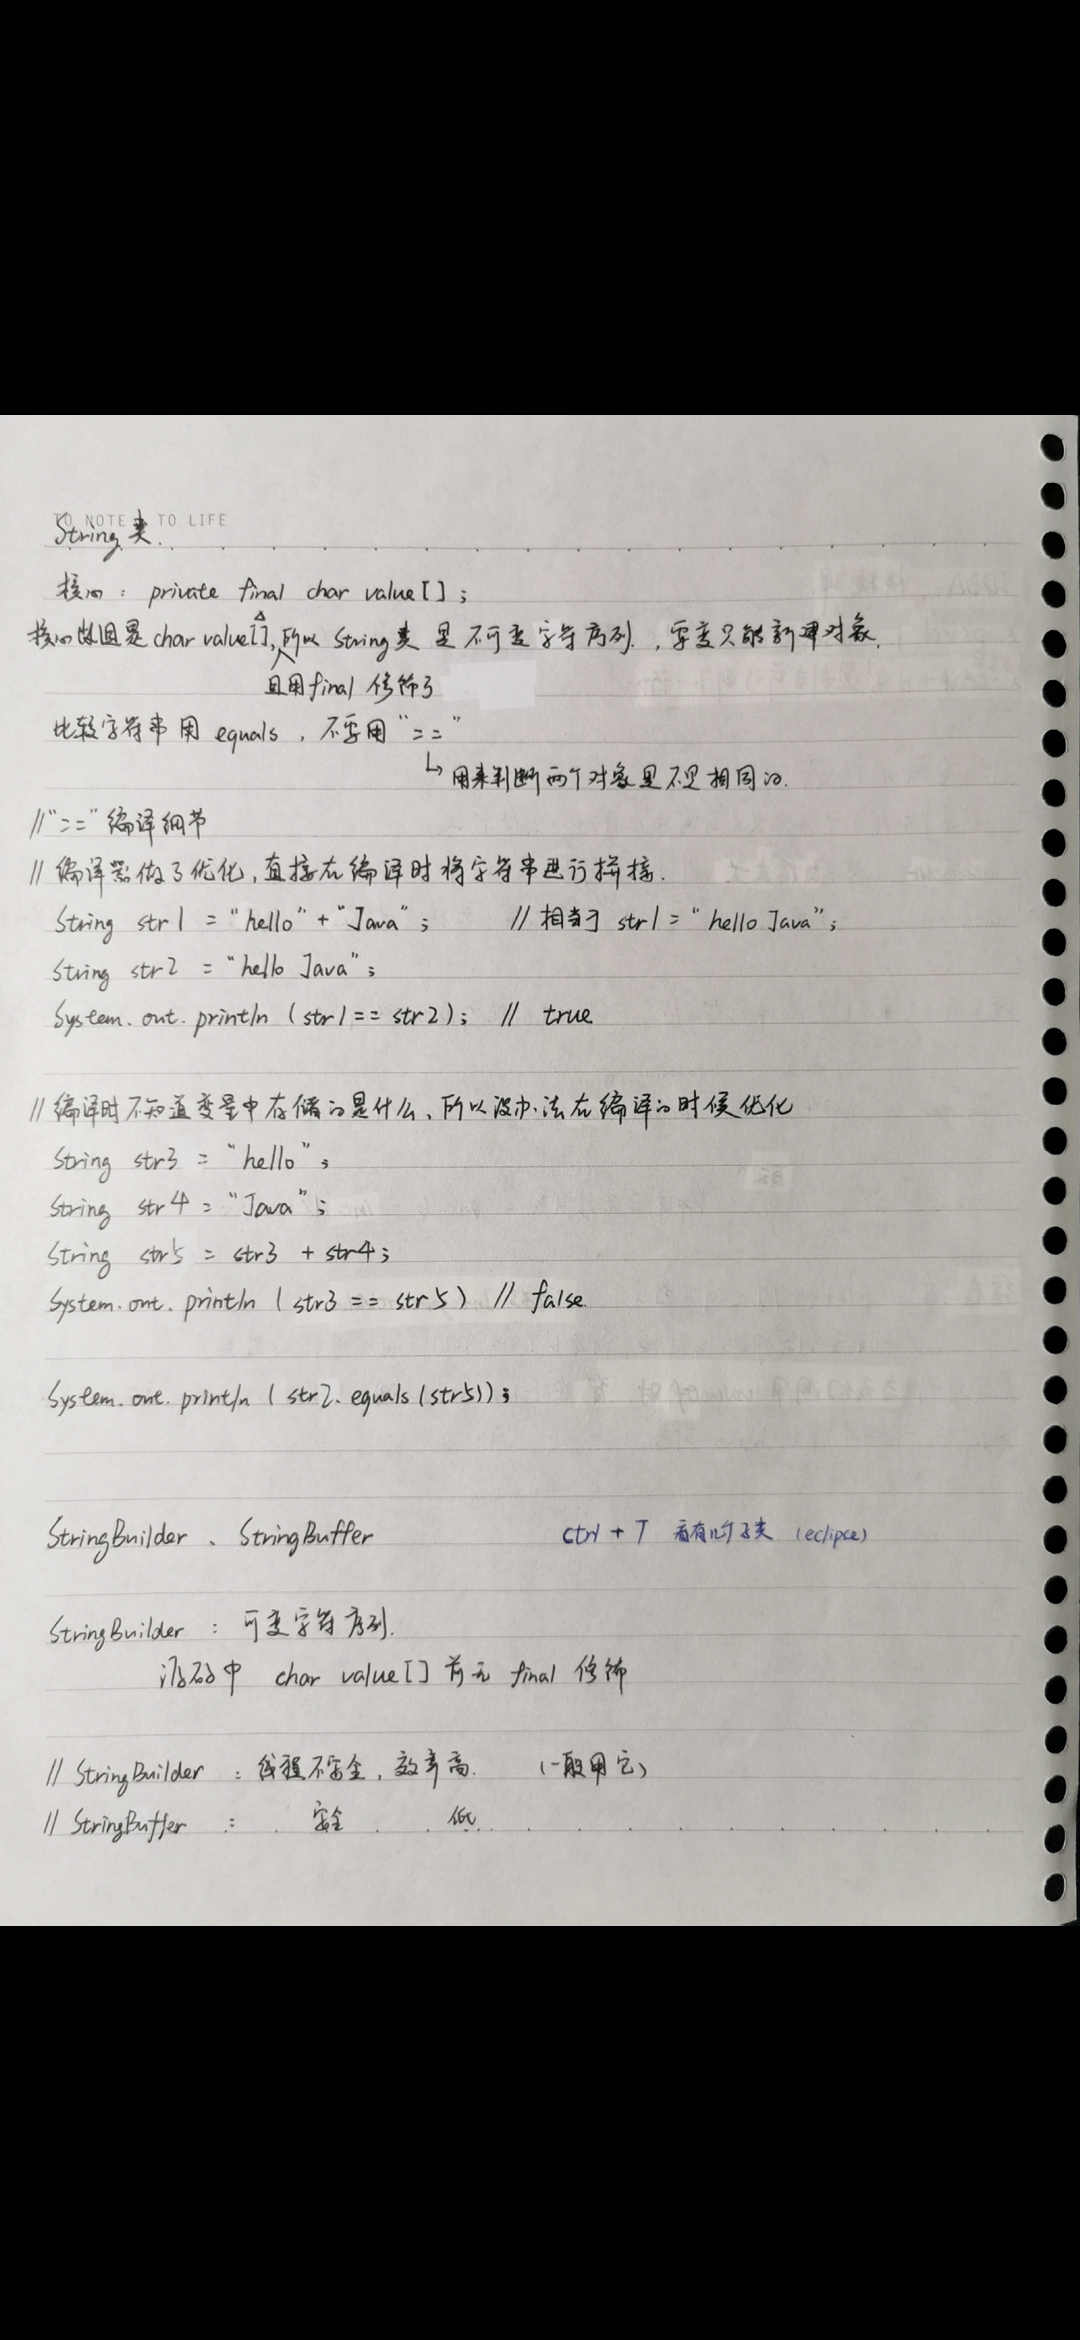 TO NOTE TO LIFE
String类.
核心：private final char value[];
核心数组是char value[],所以 String类 是不可变字符序列.，要变只能新建对象.
且用final 修饰了
比较字符串用 equals，不要用“==”
↳用来判断两个对象是不是相同的.
//“==”编译细节
//编译器做了优化,直接在编译时将字符串进行拼接.
String str1 = “hello”+“Java”; //相当于 str1=“hello Java”;
String str2 = “hello Java”;
System.out.println (str1== str2); // true
//编译时不知道变量中存储的是什么、所以没办法在编译的时候优化
String str3 = “hello”;
String str4 = “Java”;
String str5 = str3 + str4;
System.out.println (str3 == str5) // false.
System.out.println (str2.equals(str5));
StringBuilder、StringBuffer ctrl + T 看有几个子类 (eclipse)
StringBuilder：可变字符序列.
源码中 char value[] 前无 final 修饰
// StringBuilder：线程不安全，效率高. (一般用它)
// StringBuffer： 安全 低.